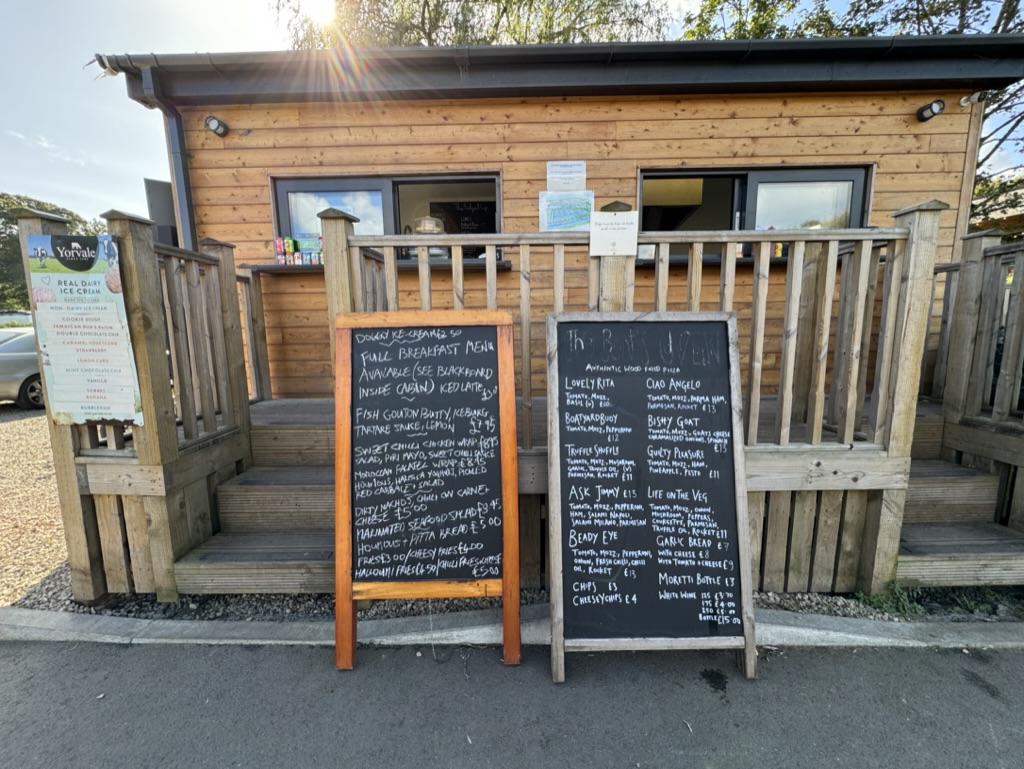 Yorvale
REAL DAIRY
ICE CREAM
NON-DAIRY ICE CREAM
COOKIE DOUGH
JAMAICAN RUM & RAISIN
DOUBLE CHOCOLATE CHIP
CARAMEL HONEYCOMB
STRAWBERRY
LEMON CURD
MINT CHOCOLATE CHIP
VANILLA
BANANA
BUBBLEGUM
DOGGY ICE CREAM £2.50
FULL BREAKFAST MENU
AVAILABLE (SEE BLACKBOARD
INSIDE CABIN) ICED LATTE
FISH GOUJON BUTTY, ICEBURG
TARTARE SAUCE, LEMON £7.95
SWEET CHILLI CHICKEN WRAP £8.95
SALAD, PIRI MAYO, SWEET CHILLI SAUCE
MOROCCAN FALAFEL WRAP £8.95
HOUMOUS, HARISSA YOGHOJ, PICKLED
RED CABBAGE + SALAD
DIRTY NACHOS, CHILLI CON CARNE +
CHEESE £5.00
MARINATED SEAFOOD SALAD £3.45
HOUMOUS + PITTA BREAD £5.00
FRIES £3.00/CHEESY FRIES £4.00
HALLOUMI FRIES £6.50/CHILLI FRIES + CHEESE
£5.00
AUTHENTIC WOOD FIRED PIZZA
LOVELY RITA
TOMATO, MOZZ,
BASIL (V) £10
BOATYARD BUOY
TOMATO, MOZZ, PEPPERONI
£12
TRUFFLE SHUFFLE
TOMATO, MOZZ, MUSHROOM,
GARLIC, TRUFFLE OIL (V)
PARMESAN, ROCKET £11
ASK JIMMY £13
TOMATO, MOZZ, PEPPERONI,
HAM, SALAMI NAPOLI,
SALAMI MILANO, PARMESAN
BEADY EYE
TOMATO, MOZZ, PEPPERONI,
ONION, FRESH CHILLI, CHILLI
OIL, ROCKET £13
CHIPS £3
CHEESEY CHIPS £4
CIAO ANGELO
TOMATO, MOZZ, PARMA HAM,
PARMESAN, ROCKET £13
BISHY GOAT
TOMATO, MOZZ, GOATS CHEESE
CARAMALIZED ONIONS, SPINACH
£13
GUILTY PLEASURE
TOMATO, MOZZ, HAM,
PINEAPPLE, PESTO £11
LIFE ON THE VEG
TOMATO, MOZZ, ONION,
MUSHROOM, PEPPERS,
COURGETTE, PARMESAN,
TRUFFLE OIL, ROCKET £11
GARLIC BREAD £7
WITH CHEESE £8
WITH TOMATO + CHEESE £9
MORETTI BOTTLE £3
WHITE WINE 125 £3.70
175 £4.00
250 £5.00
BOTTLE £15.00